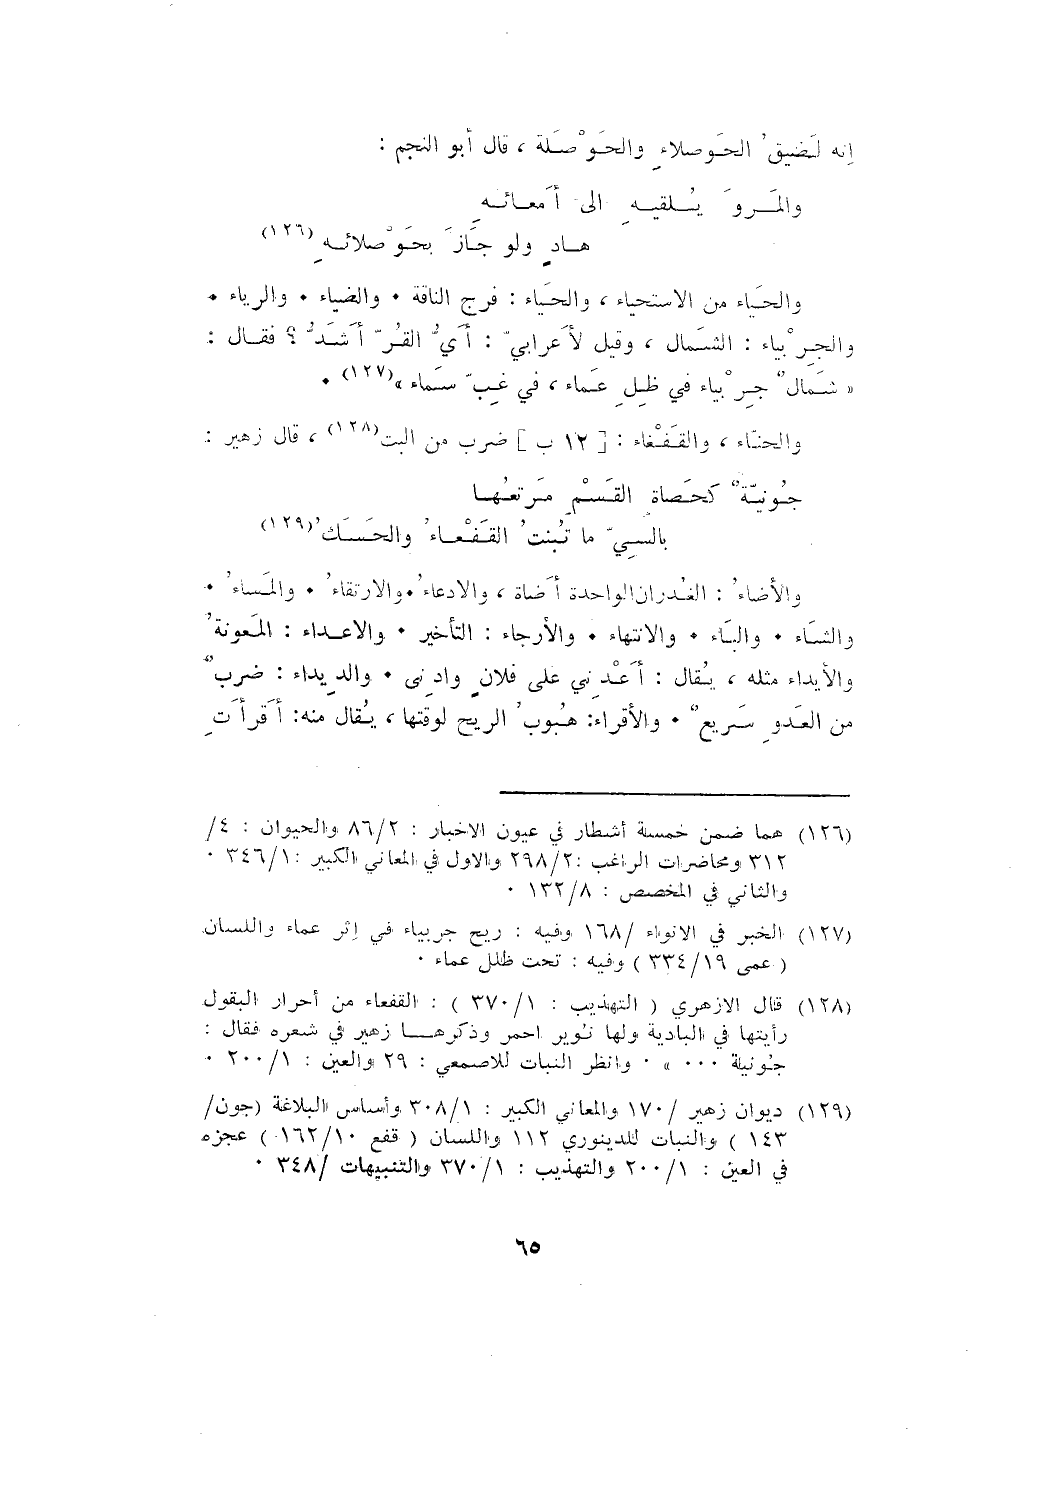 إنه لَضيقُ الحَوصلاءِ والحَوْصَلة ، قال أبو النجم :
والمَروَ يُلقيهِ الى أَمعائهِ
هادٍ ولو جَازَ بحَوْصلائهِ(١٢٦)
والحَياء من الاستحياء ، والحَياء : فرج الناقة • والضياء • والرياء •
والجِرْبياء : الشمَال ، وقيل لأعرابيّ : أَيُّ القُرّ أَشدُّ ؟ فقال :
« شَمالٌ جِرْبياء في ظلِ عَماء ، في غِبّ سَماء »(١٢٧) •
والحنّاء ، والقَفْعاء : [ ١٢ ب ] ضرب من البت(١٢٨) ، قال زهير :
جُونيّةٌ كحَصاةِ القَسْمِ مَرتعُها
بالسِيّ ما تُنبتُ القَفْعاءُ والحَسَكُ(١٢٩)
والأضاءُ : الغُدران الواحدة أَضاة ، والادعاءُ • والارتقاءُ • والمَساءُ •
والشتَاء • والبَاء • والانتهاء • والأرجاء : التأخير • والاعداء : المَعونةُ
والأيداء مثله ، يُقال : أَعْدِني على فلانٍ وادِنى • والدِيداء : ضربٌ
من العَدوِ سَريعٌ • والأقراء: هُبوبُ الريح لوقتها ، يُقال منه: أَقرأَتِ
(١٢٦) هما ضمن خمسة أشطار في عيون الاخبار : ٨٦/٢ والحيوان : ٤/
٣١٢ ومحاضرات الراغب :٢٩٨/٢ والاول في المعاني الكبير :٣٤٦/١ •
والثاني في المخصص : ١٣٢/٨ •
(١٢٧) الخبر في الانواء /١٦٨ وفيه : ريح جربياء في إثر عماء واللسان
( عمى ٣٣٤/١٩ ) وفيه : تحت ظلل عماء •
(١٢٨) قال الازهري ( التهذيب : ٣٧٠/١ ) : القفعاء من أحرار البقول
رأيتها في البادية ولها نوير احمر وذكرهــا زهير في شعره فقال :
جُونية ••• » • وانظر النبات للاصمعي : ٢٩ والعين : ٢٠٠/١ •
(١٢٩) ديوان زهير /١٧٠ والمعاني الكبير : ٣٠٨/١ وأساس البلاغة (جون/
١٤٣ ) والنبات للدينوري ١١٢ واللسان ( قفع ١٦٢/١٠ ) عجزه
في العين : ٢٠٠/١ والتهذيب : ٣٧٠/١ والتنبيهات /٣٤٨ •
٦٥